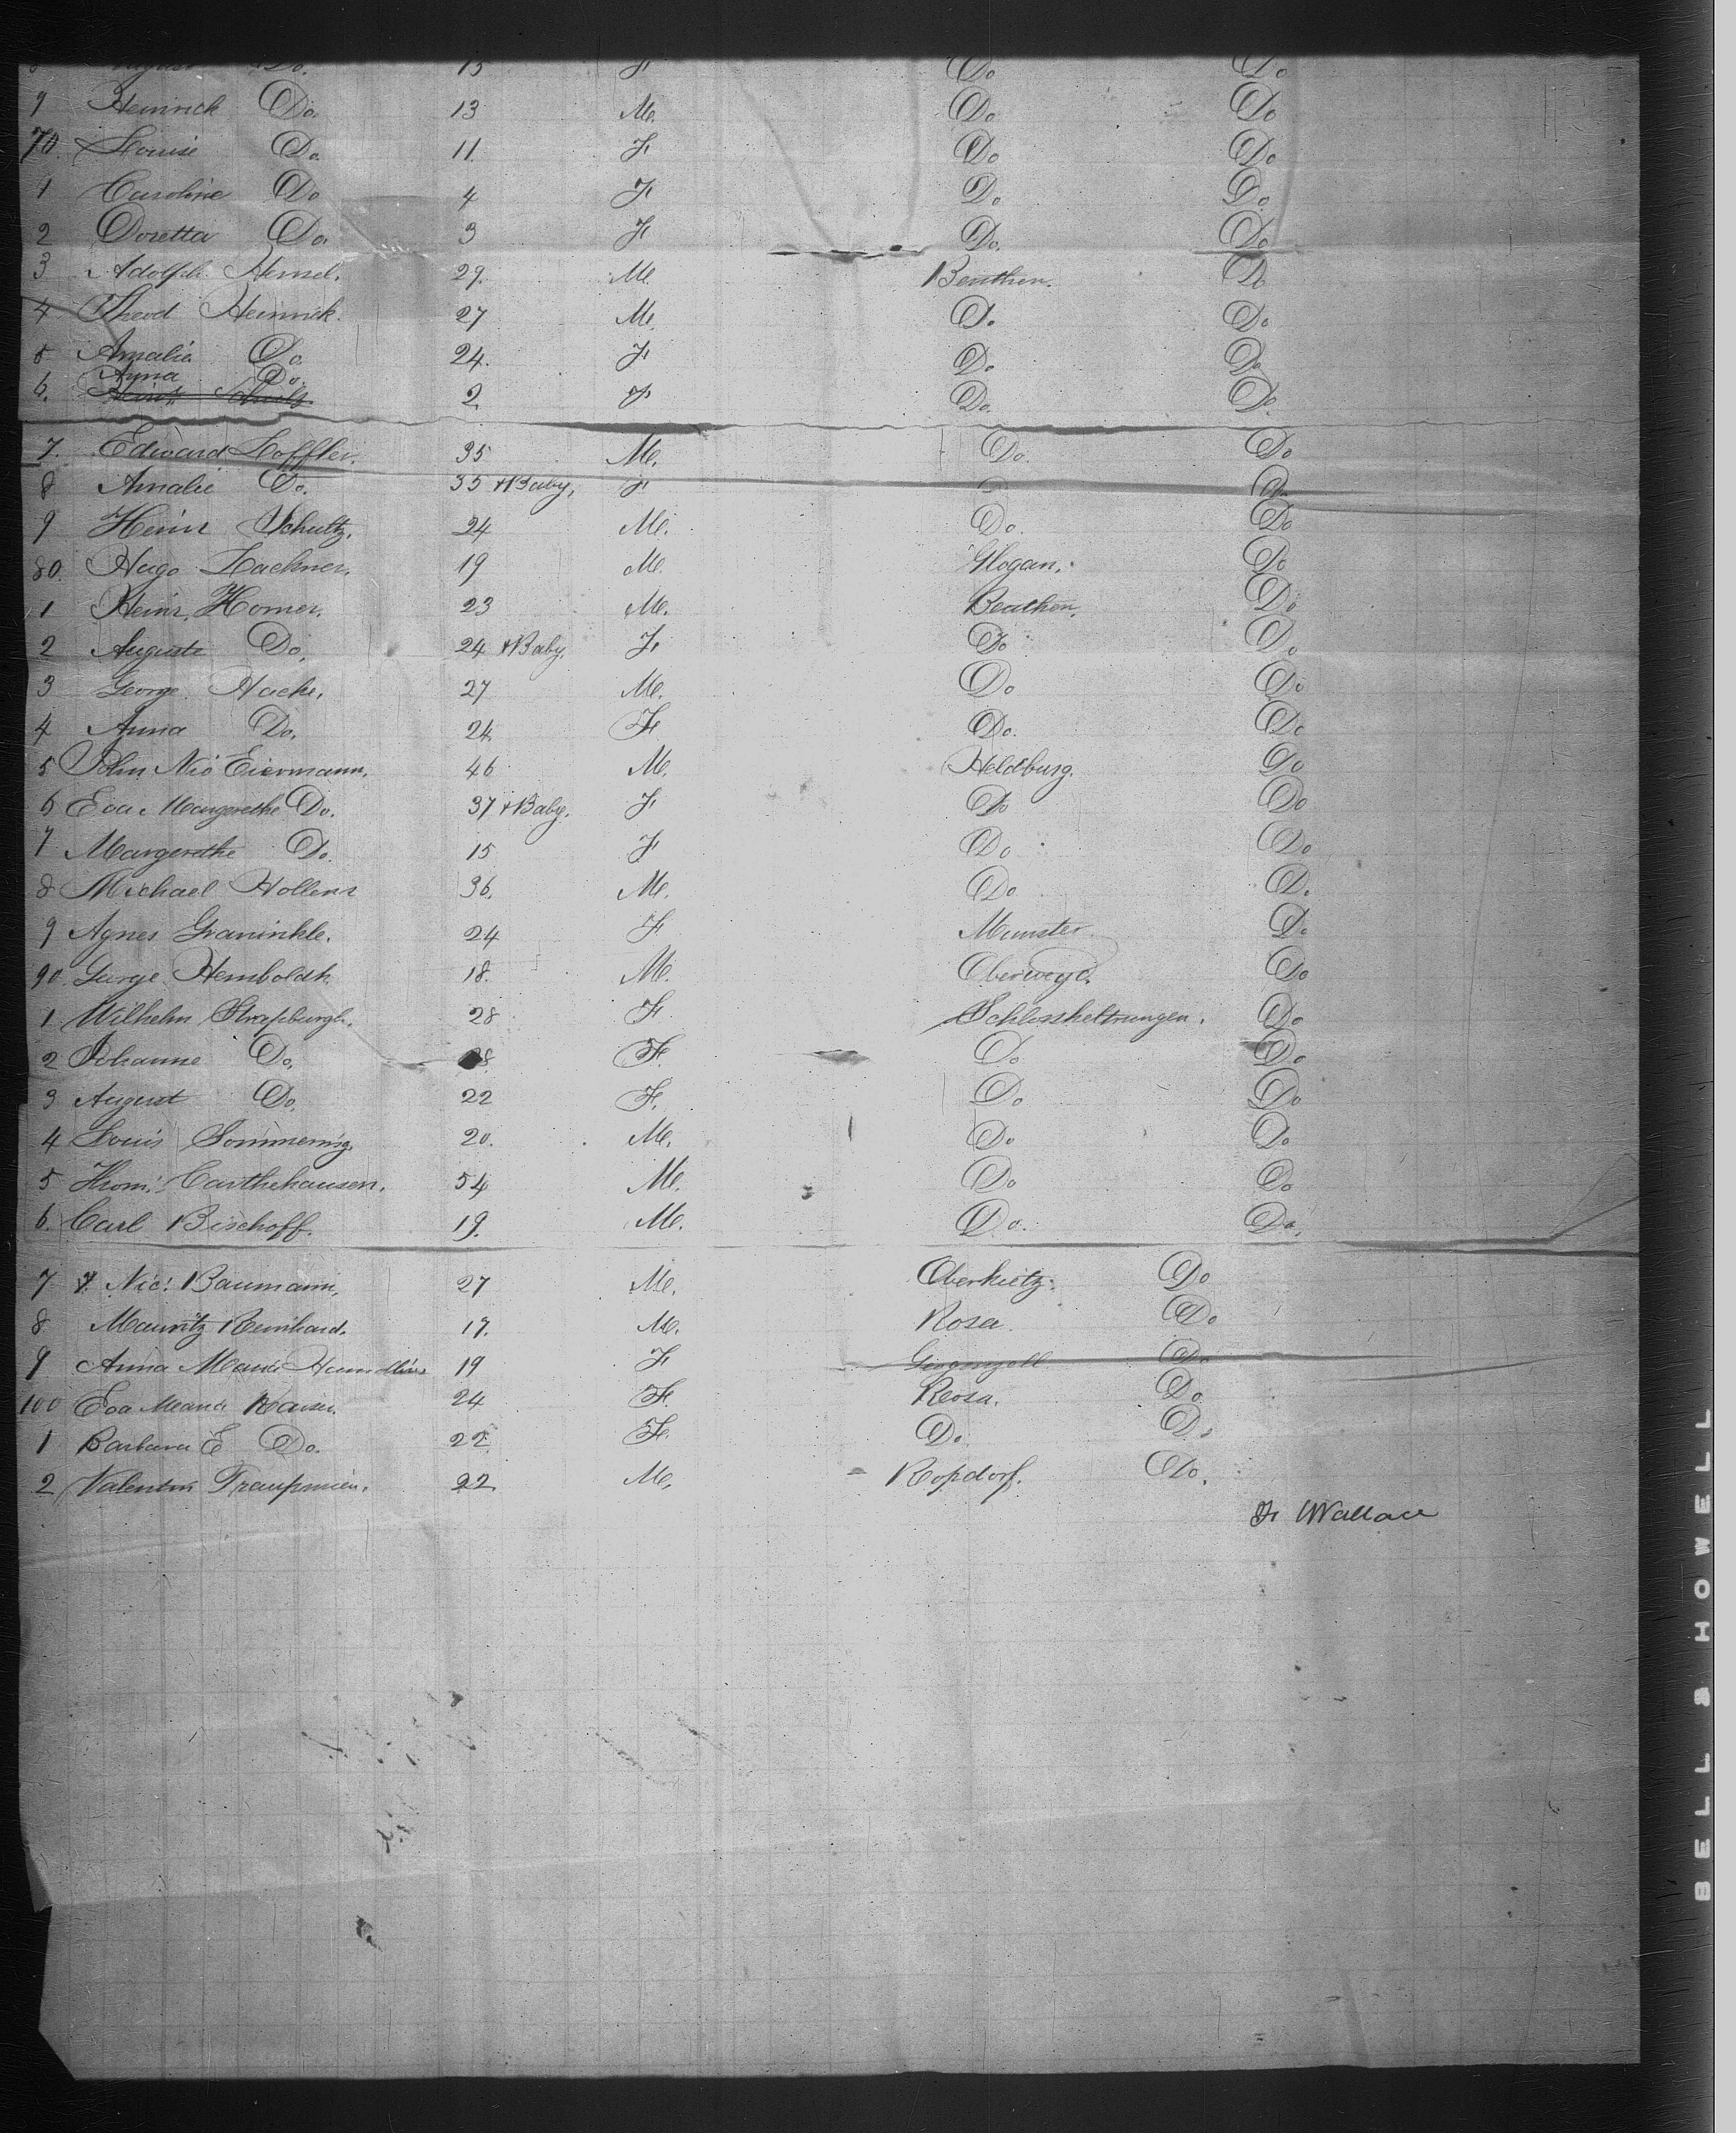 Do. 15 F Do Do
9 Heinrich Do. 13 M. Do Do
70. Louise Do. 11. F Do Do
1 Caroline Do 4 F Do. Do
2 Doretta Do. 3 F Do. Do
3 Adolph 29. M. Beuthen. Do
4 Theod Heinrich. 27 M. Do Do
5 Amalia Do 24. F Do. Do
Anna Do.
6. 2 F Do. Do.
7. Edward Loffler. 35 M. Do. Do
8 Amalie Do. 35 + Baby, F Do
9 Heinr Schultz. 24 M. Do. Do
80. Hugo Lachner. 19 M. Glogau. Do
1 Heinr. Horner. 23 M. Beuthen. Do
2 Auguste Do. 24 + Baby. F Do Do
3 George Hache. 27 M. Do Do
4 Anna Do. 24 F Do. Do
5 John Nic Eiermann. 46 M. Heldburg. Do
6 Eva Margerethe Do. 37 + Baby. F Do Do
7 Margerethe Do. 15 F Do Do
8 Michael Hollens 36. M. Do Do
9 Agnes Graninkle. 24 F Munster. Do
90. George Hemboldt. 18. M. Do
1 Wilhelm 28 F Do
2 Johanne Do. F. Do Do
3 August Do. 22 F. Do Do
4 Louis 20. M. Do Do
5 Carthehausen. 54 M. Do Do
6. Carl Bischoff. 19. M. Do. Do.
7 Nic: Baumann. 27 M. Do
8 Mauritz Reinhard. 17. M. Rosa. Do
9 Anna 19 F Do
100 Eva 24 F. Rosa. Do
1 Barbara E Do. 22 F. Do. Do
2 Valentin 22 M. Ropdorf. Do.
Wallace
BELL & HOWELL